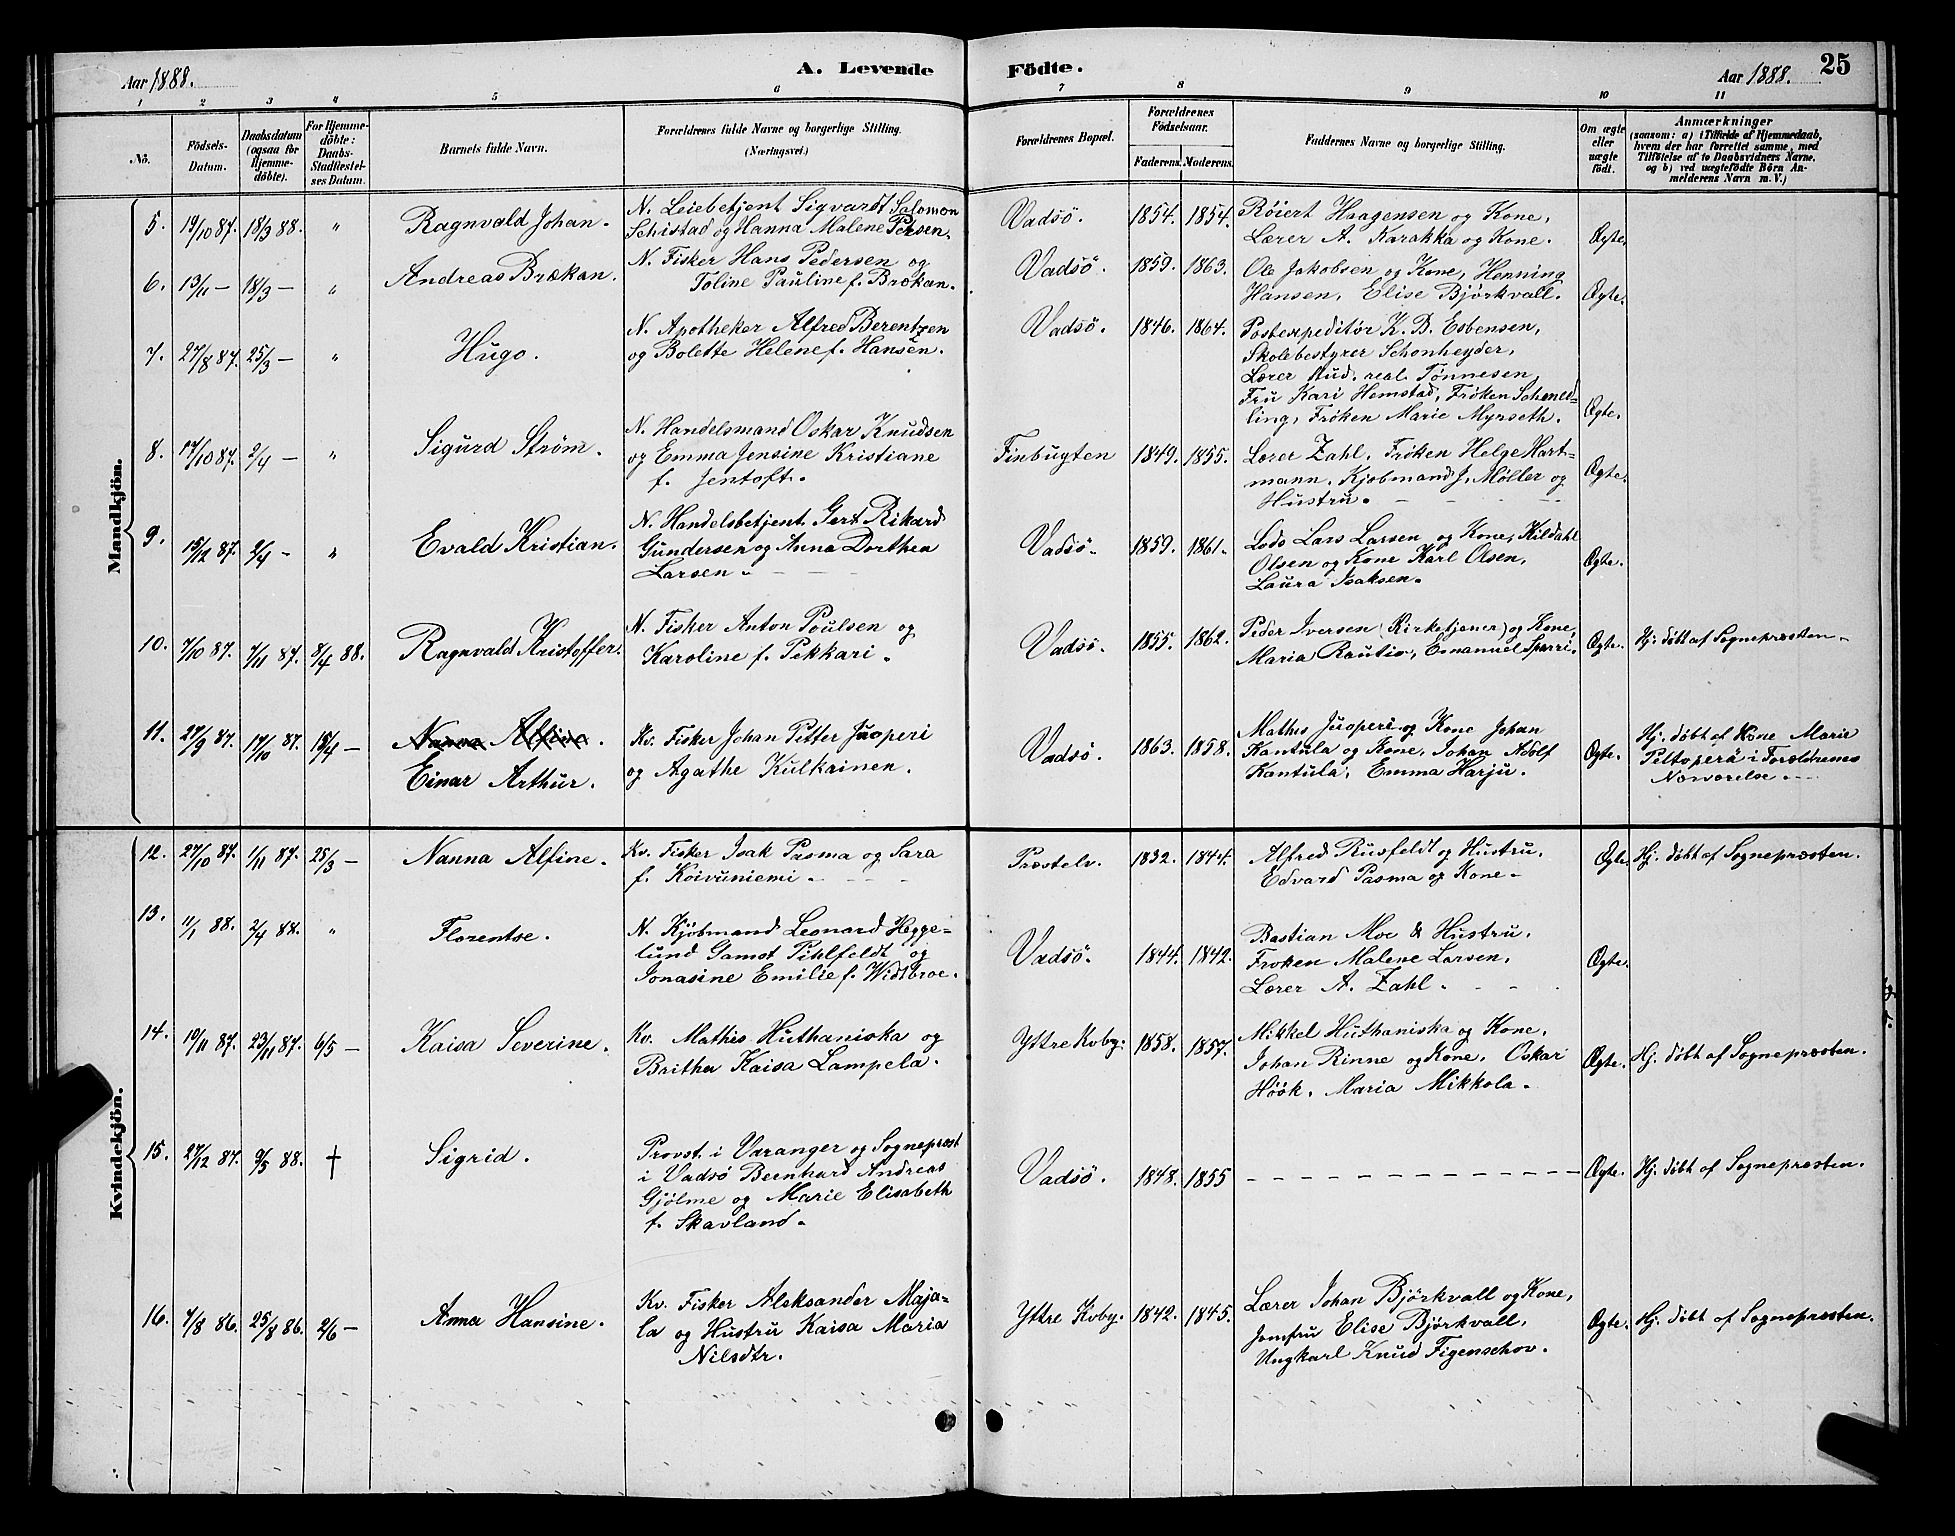 Aar 1888.
A. Levende
Födte.
Aar 1888.
25
1 2 3 4 5 6 7 8 9 10 11
No.
Födsels-Datum.
Daabsdatum (ogsaa for Hjemme-döbte).
For Hjemme-döbte: Daabs-Stadfæstel-ses Datum.
Barnets fulde Navn.
Forældrenes fulde Navne og borgerlige Stilling.
(Næringsvei.)
Forældrenes Bopæl.
Forældrenes Födselsaar.
Faderens. Moderens.
Faddernes Navne og borgerlige Stilling.
Om ægte eller uægte födt.
Anmærkninger
(saasom: a) i Tilfælde af Hjemmedaab, hvem der har forrettet samme, med Tilföielse af to Daabsvidners Navne, og b) ved uægtefödte Börn An-melderens Navn m. V.)
Mandkjön.
5. 19/10 87. 18/3 88. " Ragnvald Johan.
N. Leiebetjent Sigvardt Salomon
Schistad og Hanna Malene Persen.
Vadsö. 1854. 1854.
Röiert Haagensen og Kone,
Lærer A. Karakka og Kone.
Ægte.
6. 13/11 — 18/3 — " Andreas Brækan.
N. Fisker Hans Pedersen og
Toline Pauline f. Brækan.
Vadsö. 1859. 1863.
Ole Jakobsen og Kone, Henning
Hansen, Elise Björkvall.
Ægte.
7. 27/8 87. 25/3 — " Hugo.
N. Apotheker Alfred Berentzen
og Bolette Helene f. Hansen.
Vadsö. 1846. 1864.
Postexpeditör K. B. Esbensen,
Skolebestyrer Schonheyder,
Lærer stud. real. Tönnesen,
Fru Kari Hemstad, Fröken Schmed-
ling, Fröken Marie Myrseth.
Ægte.
8. 17/10 87. 2/4 — " Sigurd Ström.
N. Handelsmand Oskar Knudsen
og Emma Jensine Kristiane
f. Jentoft.
Finbugten 1849. 1855.
Lærer Zahl, Fröken Helge Hart-
mann, Kjöbmand J. Möller og
Hustru.
Ægte.
9. 15/12 87. 2/4 — " Evald Kristian.
N. Handelsbetjent Gert Rikard
Gundersen og Anna Dorthea
Larsen.
Vadsö. 1859. 1861.
Lods Lars Larsen og Kone, Kildahl
Olsen og Kone Karl Olsen,
Laura Isaksen.
Ægte.
10. 7/10 87. 7/11 87. 8/4 88. Ragnvald Kristoffer.
N. Fisker Anton Poulsen og
Karoline f. Pekkari.
Vadsö. 1855. 1862.
Peder Iversen (Kirketjener) og Kone,
Maria Rautio, Emanuel Sparri.
Ægte. Hj. döbt af Sognepræsten.
11. 27/9 87. 17/10 87. 15/4 — Nanna Alfine.
Einar Arthur.
Kv. Fisker Johan Petter Juoperi
og Agathe Kulkainen.
Vadsö. 1863. 1858.
Mathis Juoperi og Kone Johan
Kantula og Kone, Johan Adolf
Kantula, Emma Harju.
Ægte.
Hj. döbt af Kone Maria
Peltoperä i Forældrenes
Nærværelse.
Kvindekjön.
12. 27/10 87. 1/11 87. 25/3 — Nanna Alfine.
Kv. Fisker Isak Pasma og Sara
f. Koivuniemi.
Præstelv. 1832. 1844.
Alfred Rusfeldt og Hustru,
Edvard Pasma og Kone.
Ægte. Hj. döbt af Sognepræsten.
13. 11/1 88. 2/4 88. " Florentse.
N. Kjöbmand Leonard Hegge-
lund Gamst Pihlfeldt og
Jonasine Emilie f. Widsbroe.
Vadsö. 1844. 1842.
Bastian Moe & Hustru,
Froken Malene Larsen,
Lærer A. Zahl.
Ægte.
14. 19/11 87. 23/11 87. 6/5 — Kaisa Severine.
Kv. Mathis Huthaniska og
Britha Kaisa Lampela.
Yttre Kvby. 1858. 1857.
Mikkel Huthaniska og Kone,
Johan Rinne og Kone, Oskar
Höök, Maria Mikkola.
Ægte. Hj. döbt af Sognepræsten.
15. 27/12 87. 9/5 88. † Sigrid.
Provst i Varanger og Sognepræst
i Vadsö Bernhard Andreas
Gjölme og Marie Elisabeth
f. Skavland.
Vadsö. 1848. 1855
Ægte. Hj. döbt af Sognepræsten.
16. 7/8 86. 25/8 86. 2/6 — Anna Hansine.
Kv. Fisker Aleksander Maja-
la og Hustru Kaisa Maria
Nilsdtr.
Yttre Kvby. 1842. 1845.
Lærer Johan Björkvall og Kone,
Jomfru Elise Björkvall,
Ungkarl Knud Figenschov.
Ægte. Hj. döbt af Sognepræsten.